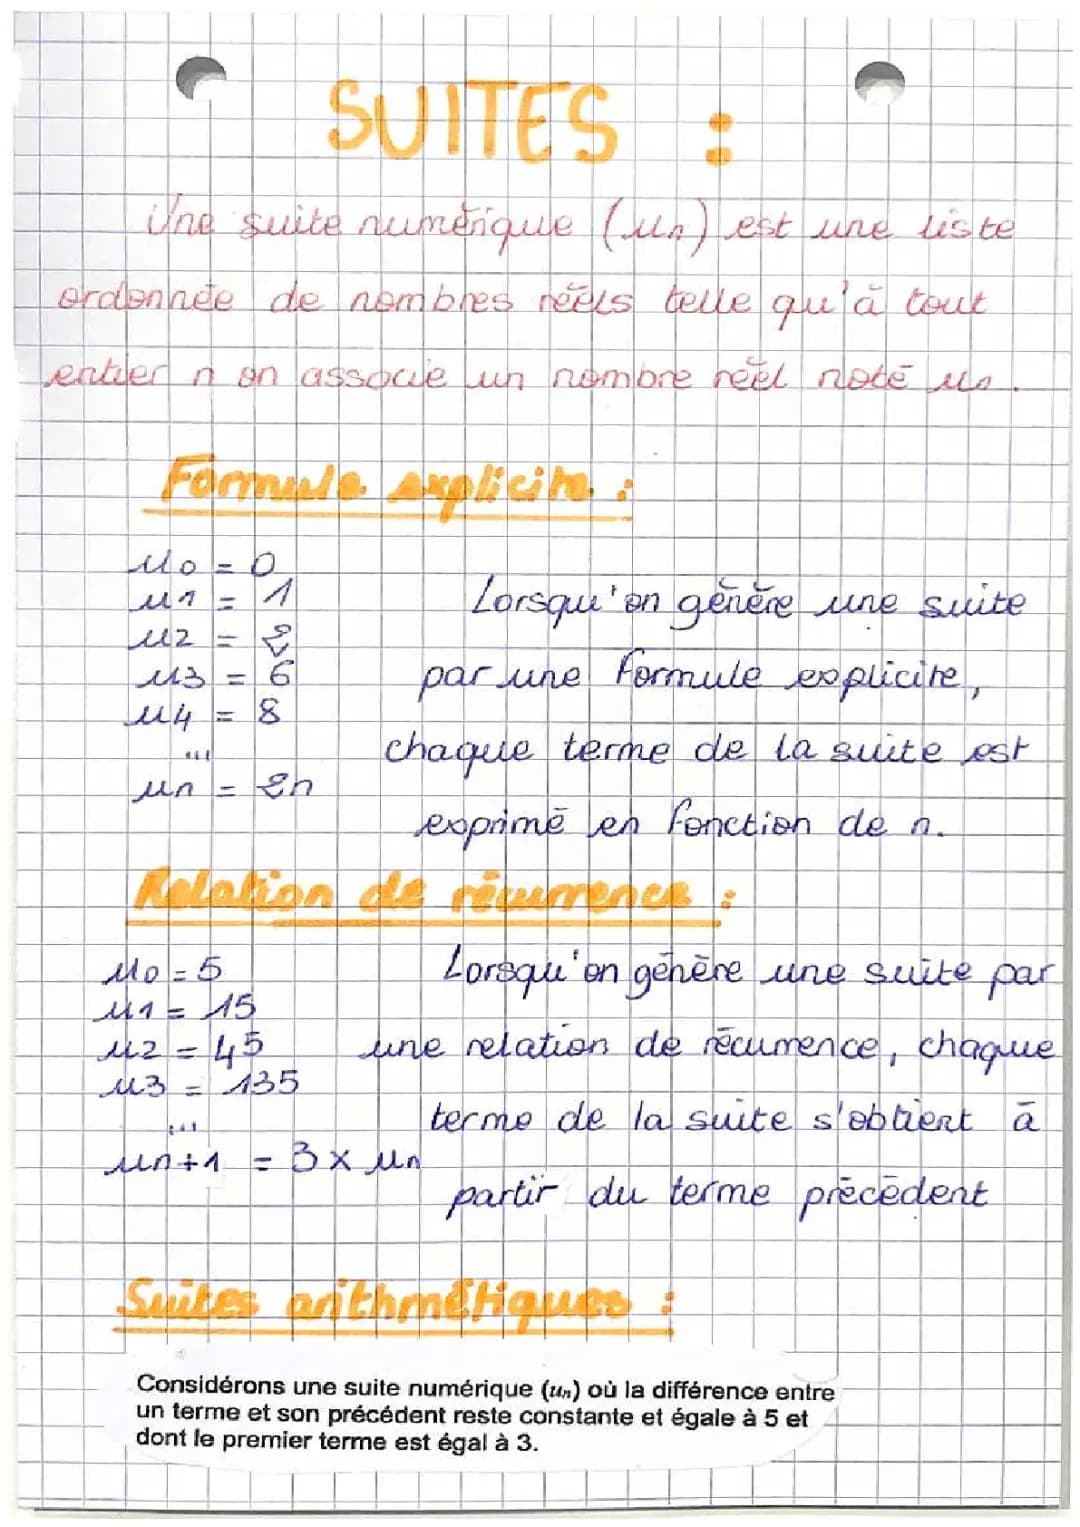 SUITES :
Une suite numérique (un) est une liste
ordonnée de nombres réels telle qu'à tout
entier n on associe un nombre réel noté un.
Formule explicite :
u0 = 0
u1 = 1
u2 = 2
u3 = 6
u4 = 8
...
un = 2n
Lorsqu'on génère une suite
par une formule explicite,
chaque terme de la suite est
exprimé en fonction de n.
Relation de récurrence :
u0 = 5
u1 = 15
u2 = 45
u3 = 135
...
un+1 = 3 x un
Lorsqu'on génère une suite par
une relation de récurrence, chaque
terme de la suite s'obtient à
partir du terme précédent
Suites arithmétiques :
Considérons une suite numérique (un) où la différence entre
un terme et son précédent reste constante et égale à 5 et
dont le premier terme est égal à 3.